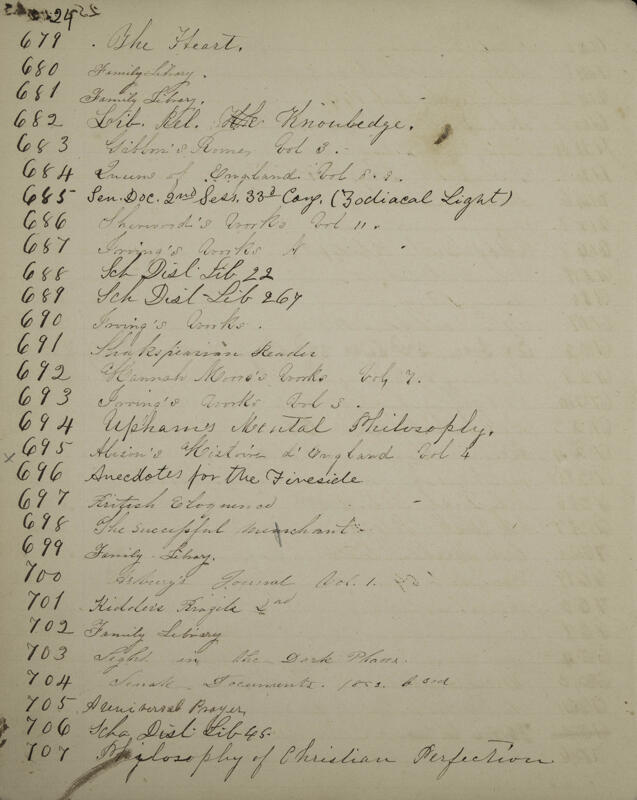 24
679 . The Heart.
680 Family Library.
681 Family Library.
682 Lib. Rel. the Knowledge.
683 Gibbon's Rome, Vol 3.
684 Queens of England Vol
685 Sen. Doc. 2nd Sess. 33d Cong. (Zodiacal Light)
686 Works Vol 11.
687 Irving's Works
688 Sch Dist Lib 22
689 Sch Dist Lib 267
690 Irving's Works.
691 Shakspearian Reader
692 Hannah Moore's Works Vol 7.
693 Irving's Works Vol
694 Upham's Mental Philosophy.
x 695 Alison's Histoire d' England Vol 4
696 Anecdotes for the Fireside
697 British Eloquence
698 The successful merchant
699 Family Library.
700 Asbury's Journal Vol. 1.
701 Kidder's 2nd
702 Family Library
703 Light in the Dark
704 Senate Documents.
705 A universal Prayer
706 Scho Dist Lib 45
707 Philosophy of Christian Perfection